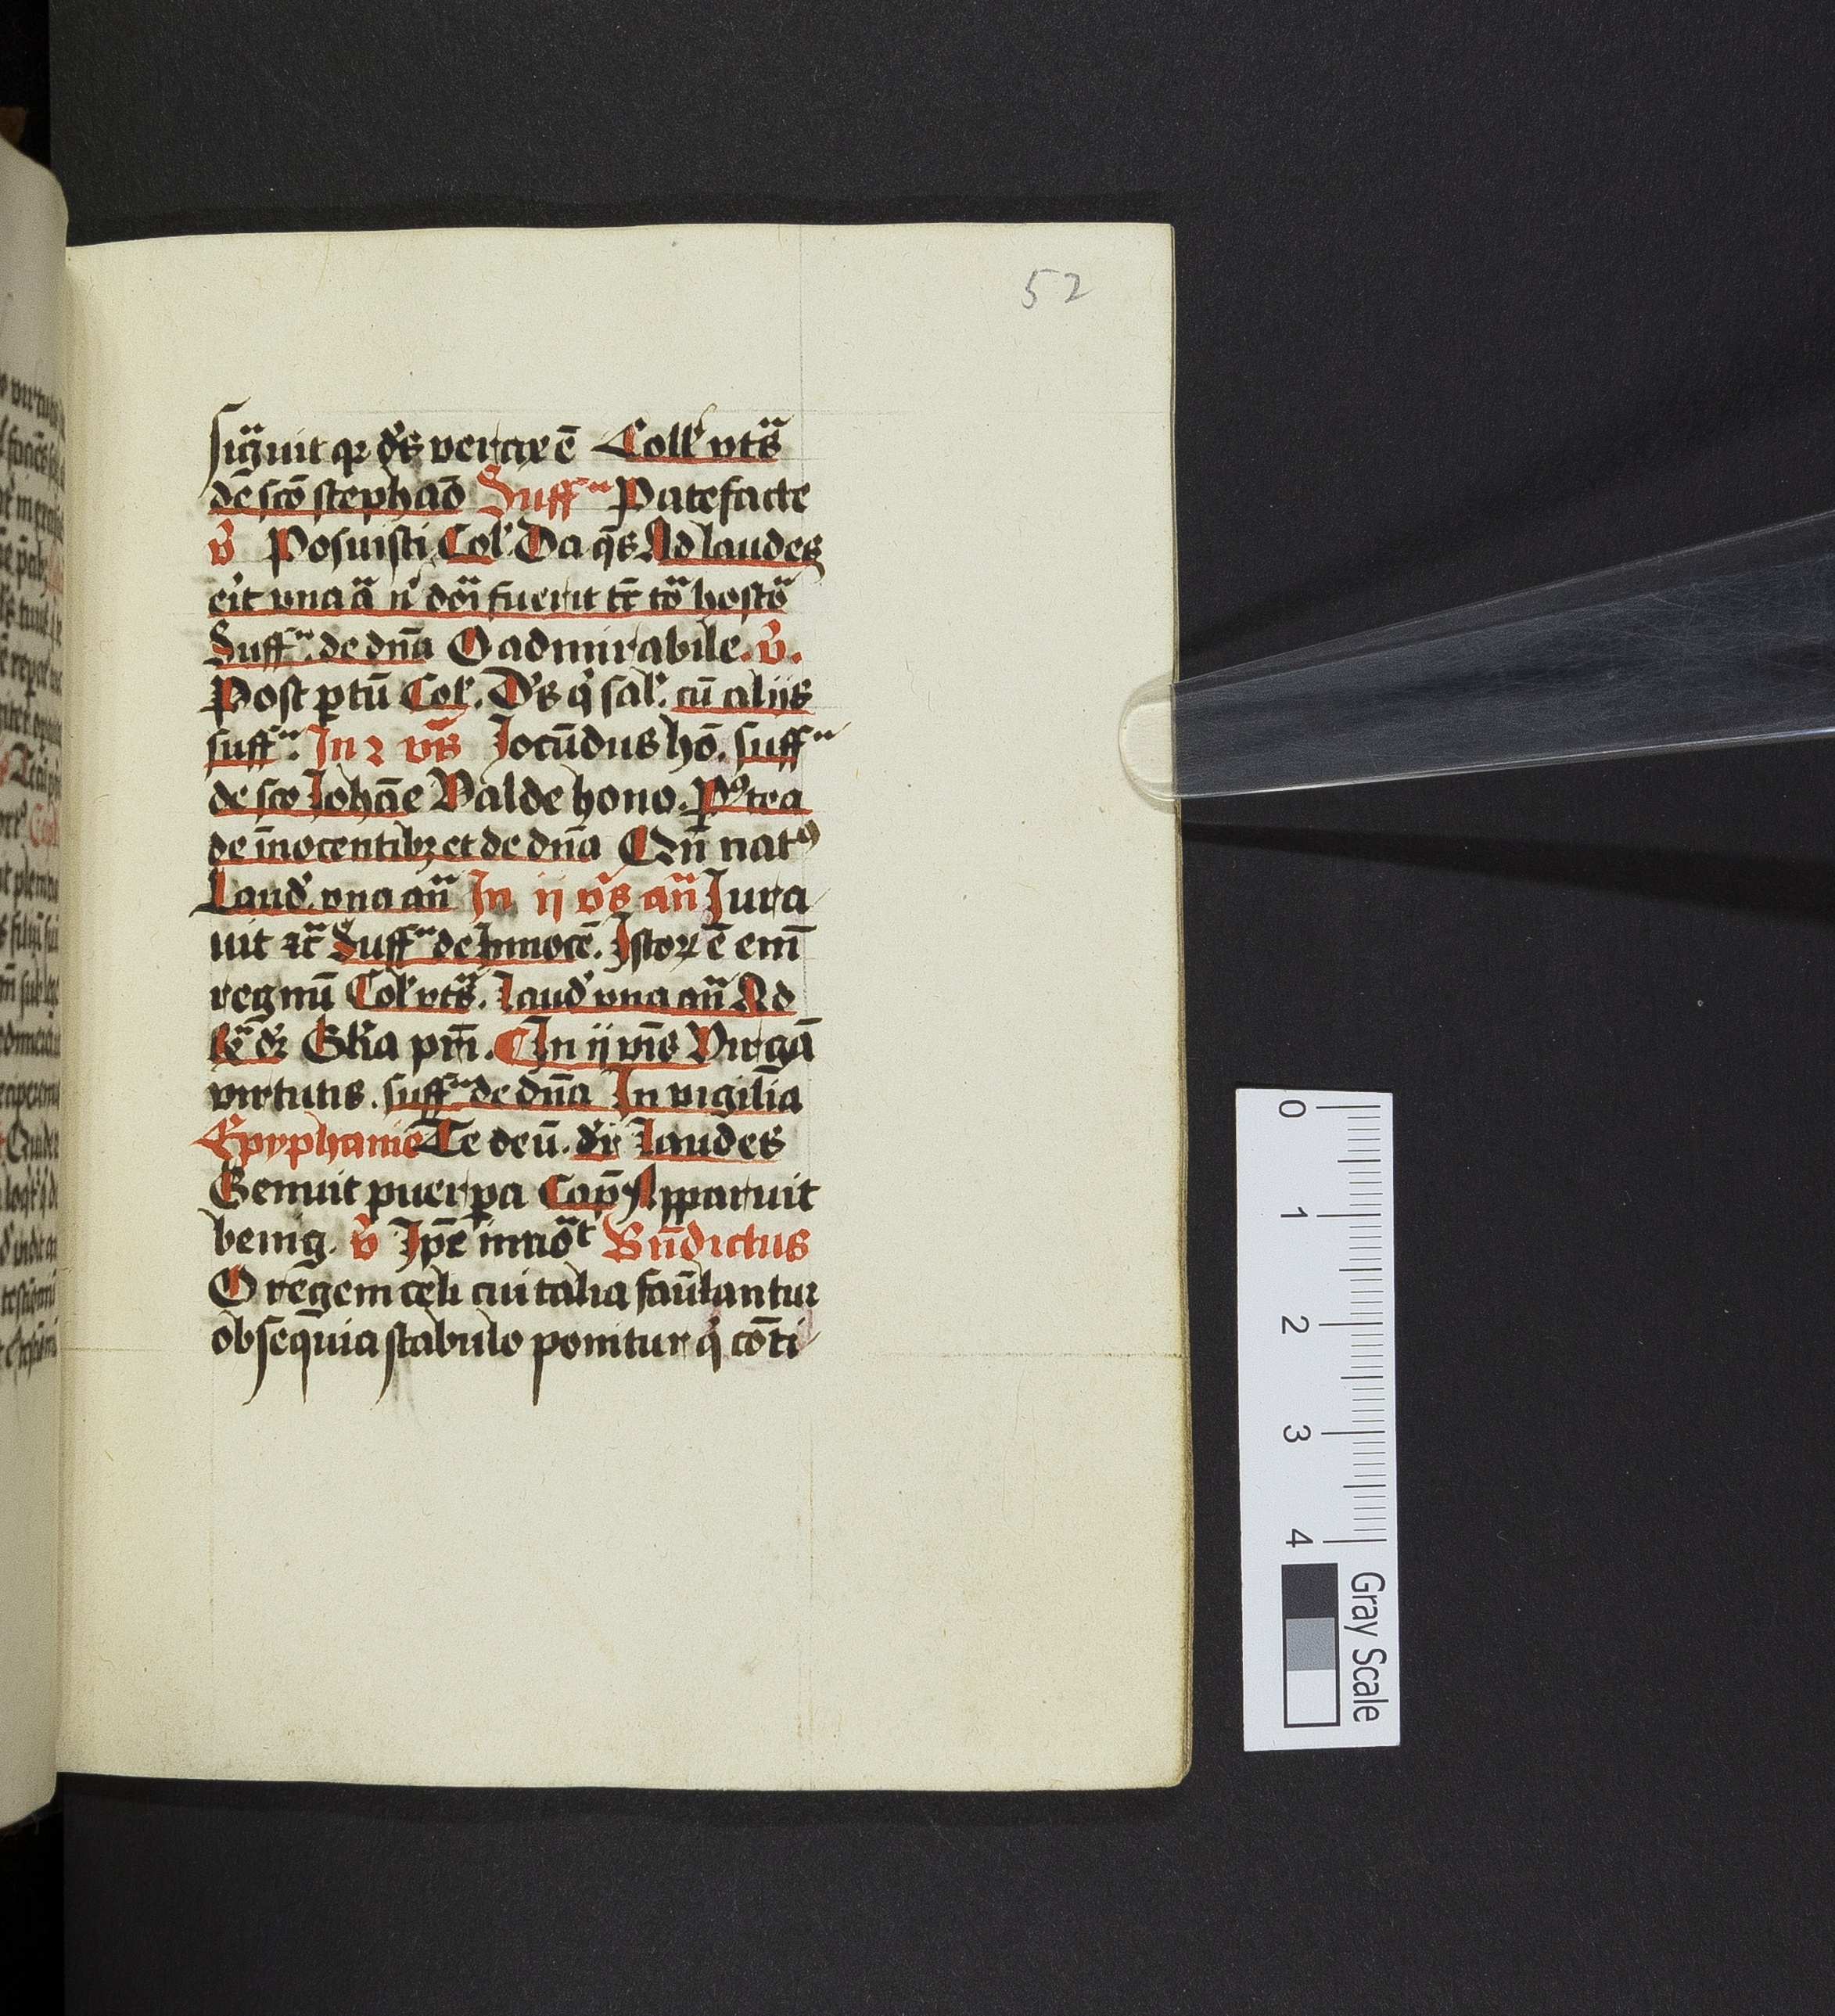 52
signuit qr ds̄ verax ē Coll' vts̄
de scō stephaō Suff Patefacte
v̄ Posuisti Col' Da qs̄ Ad laudes
Suff. de dn̄a O admirabile. v̄.
Post ptū Col'. Ds̄ q sal'. cū alijs
suff. In 2 vs̄ Jocūdus hō. suff
de sco Johāe Valde hono. Postea
de īnocentibz et de dn̄a Cū natꝰ
Laud'. vna an̄ In ij vs̄ an̄ Jura
uit ꝛc̄ Suff de Innocē. Istoꝝ ē em̄
regnū Col' vts̄. Laud' vna an̄ Ad
Gl'ia pm̄. In ij vn̄s Virgā
virtutis. suff de dn̄a In vigilīa
Epyphanie Te deū. dr̄ Laudes
Genuit puerpa Cap̄ Apparuit
benig. v̄ Ipē inuōt Bn̄dictus
O regem celi cui talia faūlantur
obsequia stabulo ponitur q cōti
0 1 2 3 4 Gray Scale